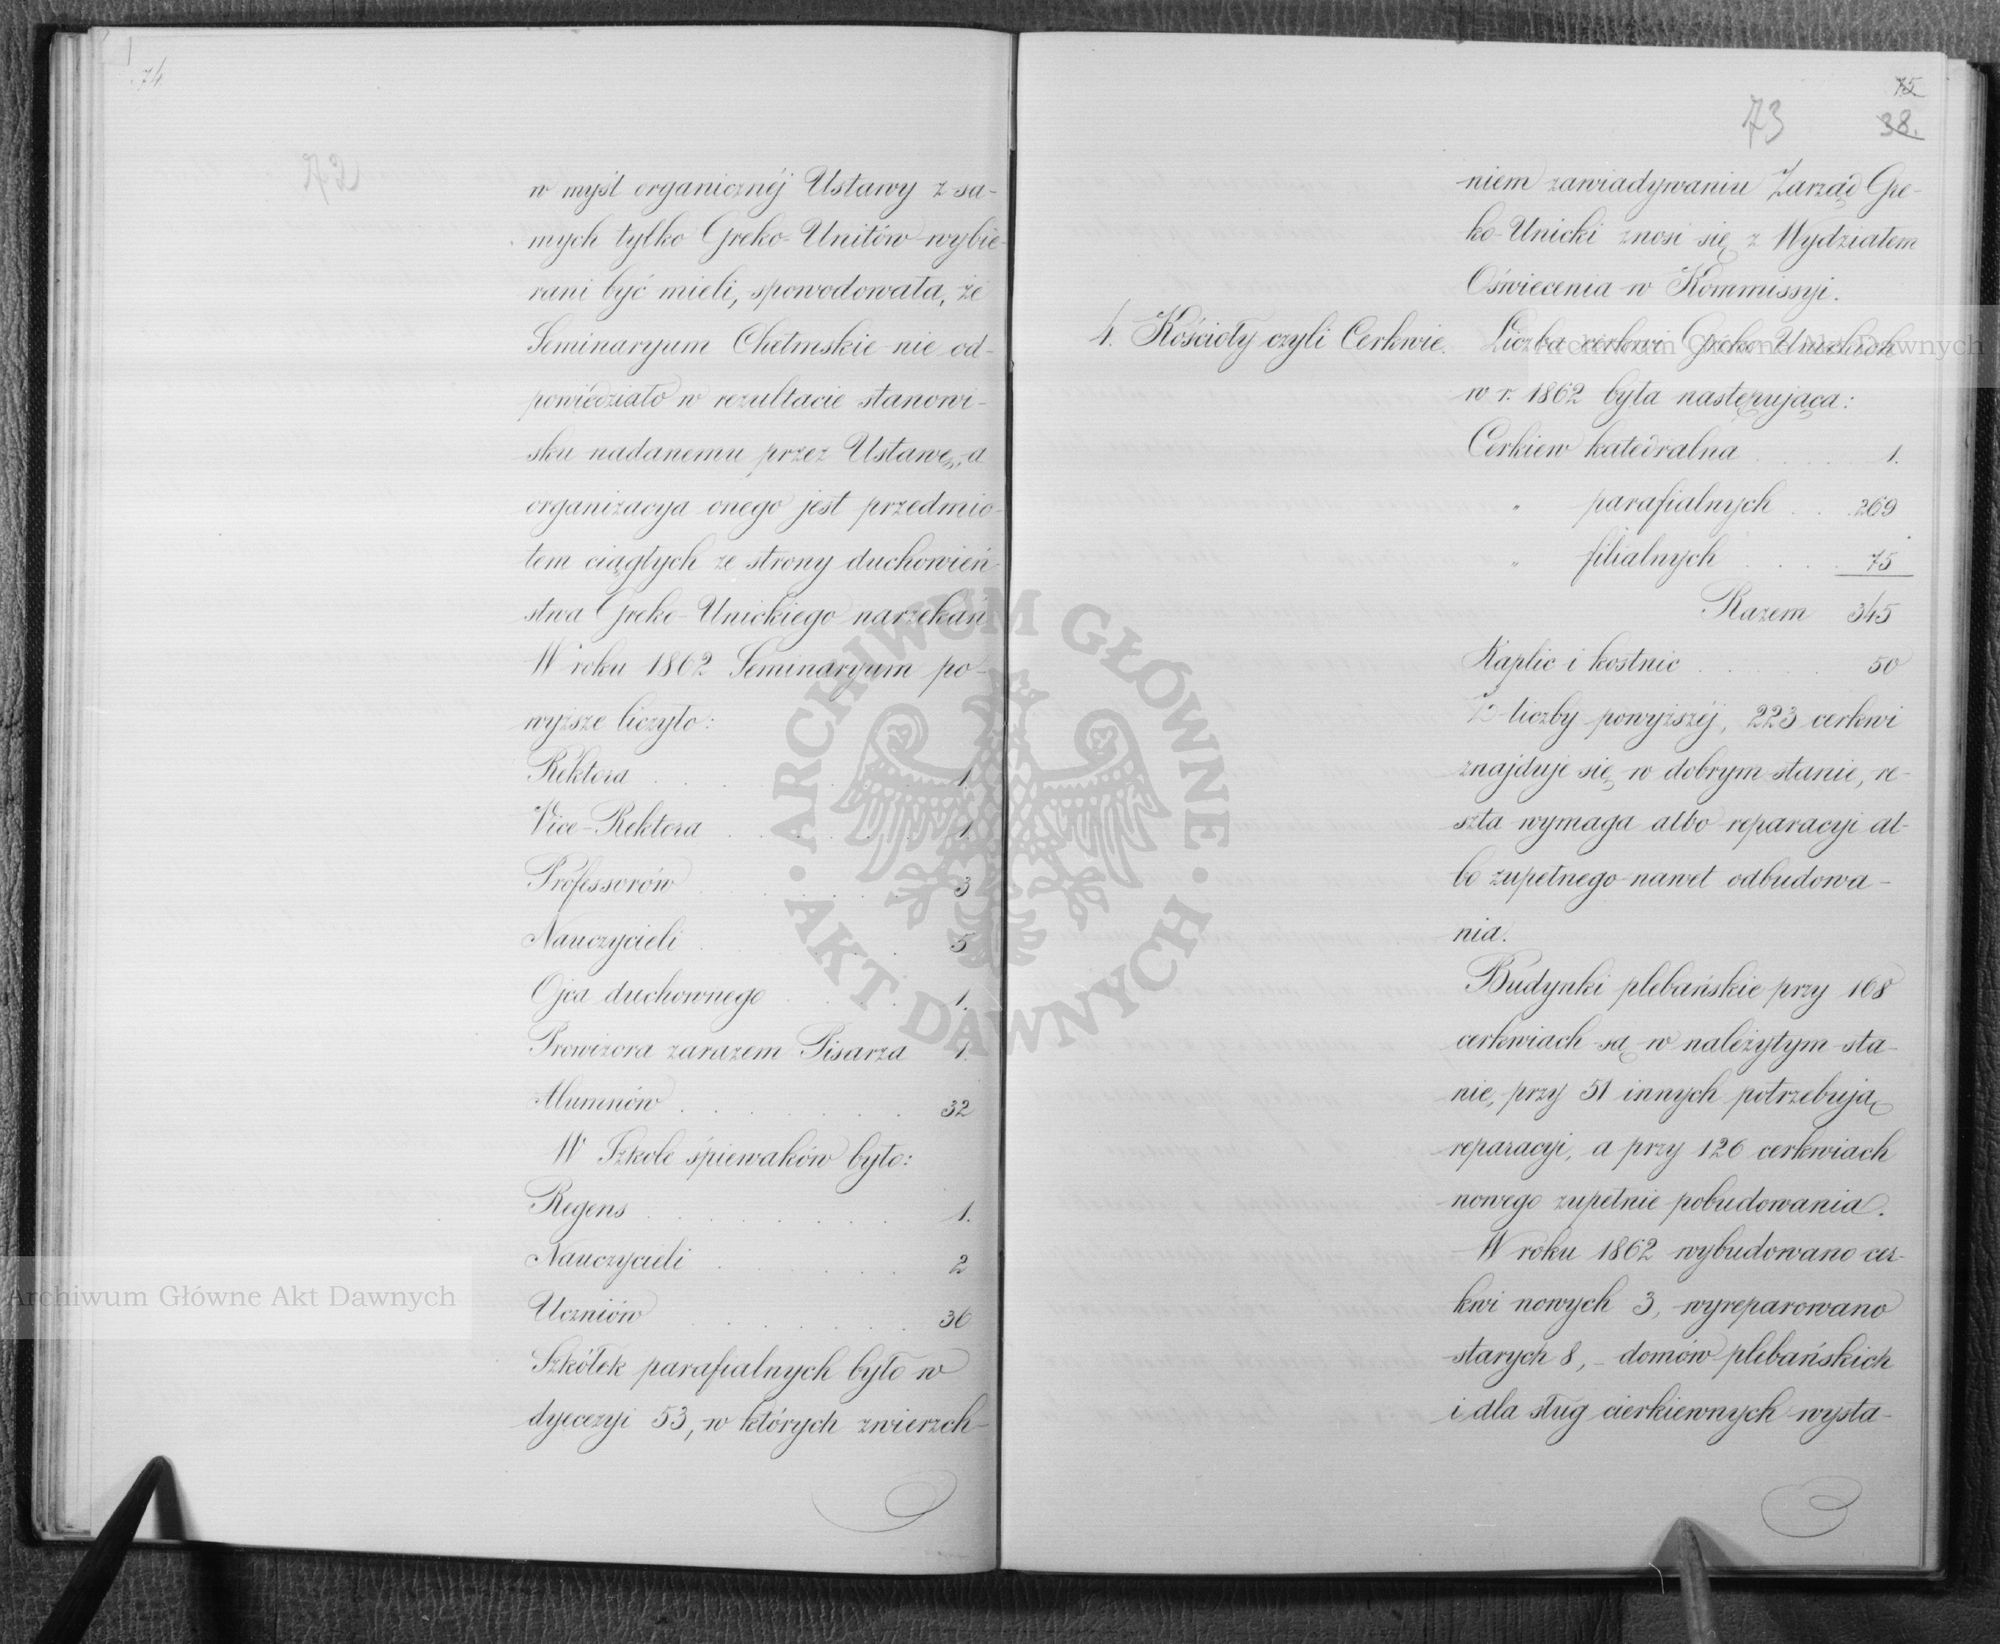 74
72
w myśl organicznéj Ustawy z sa-
mych tylko Greko-Unitów wybie-
rani być mieli, spowodowała, że
Seminaryum Chełmskie nie od-
powiedziało w rezultacie stanowi-
sku nadanemu przez Ustawę, a
organizacya onego jest przedmio-
tem ciągłych ze strony duchowień-
stwa Greko-Unickiego narzekań
W roku 1862 Seminaryum po-
wyższe liczyło:
Rektora . . . . 1.
Vice-Rektora . . . . 1.
Professorów . . . . 3
Nauczycieli . . . . 5
Ojca duchownego . . . . 1.
Prowizora zarazem Pisarza 1.
Alumnów . . . . 32
W Szkole śpiewaków było:
Regens . . . . 1.
Nauczycieli . . . . 2
Uczniów . . . . 36
Szkółek parafialnych było w
dyecezyi 53, w których zwierzch-
75
73
38.
niem zawiadywaniu Zarząd Gre-
ko-Unicki znosi się z Wydziałem
Oświecenia w Kommissyi.
4. Kościoły czyli Cerkwie. Liczba cerkwi Greko-Unickich
w r. 1862 była następująca:
Cerkiew katedralna . . . . 1.
" parafialnych . . 269
" filialnych . . . . 75
Razem 345
Kaplic i kostnic . . . . 50
Z liczby powyższéj, 223 cerkwi
znajduje się w dobrym stanie, re-
szta wymaga albo reparacyi al-
bo zupełnego nawet odbudowa-
nia.
Budynki plebańskie przy 168
cerkwiach są w należytym sta-
nie, przy 51 innych potrzebują
reparacyi, a przy 126 cerkwiach
nowego zupełnie pobudowania.
W roku 1862 wybudowano cer-
kwi nowych 3, wyreparowano
starych 8, - domów plebańskich
i dla sług cierkiewnych wysta-
ARCHIWUM GŁÓWNE · AKT DAWNYCH ·
Archiwum Główne Akt Dawnych
Archiwum Główne Akt Dawnych